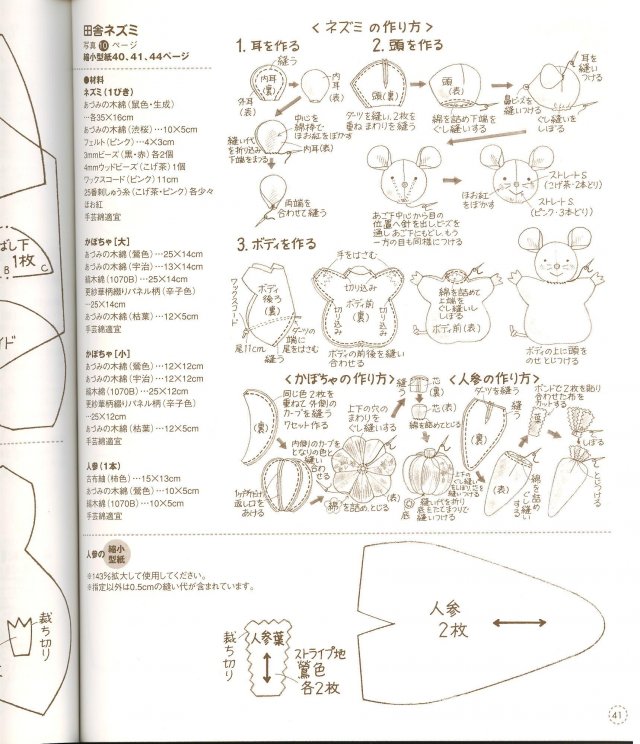 田舎ネズミ
写真⑩ページ
縮小型紙40、41、44ページ
●材料
ネズミ(1ぴき)
あづみの木綿(鼠色・生成)
…各35×16cm
あづみの木綿(渋桜)…10×5cm
フェルト(ピンク)…4×3cm
3mmビーズ(黒・赤)各2個
4mmウッドビーズ(こげ茶)1個
ワックスコード(ピンク)11cm
25番刺しゅう糸(こげ茶・ピンク)各少々
ほお紅
手芸綿適宜
かぼちゃ[大]
あづみの木綿(鶯色)…25×14cm
あづみの木綿(宇治)…13×14cm
縞木綿(1070B)…25×14cm
更紗華柄綴りパネル柄(辛子色)
…25×14cm
あづみの木綿(枯葉)…12×5cm
手芸綿適宜
かぼちゃ[小]
あづみの木綿(鶯色)…12×12cm
あづみの木綿(宇治)…12×12cm
縞木綿(1070B)…25×12cm
更紗華柄綴りパネル柄(辛子色)
…25×12cm
あづみの木綿(枯葉)…12×5cm
手芸綿適宜
人参(1本)
古布紬(柿色)…15×13cm
あづみの木綿(鶯色)…10×5cm
縞木綿(1070B)…10×5cm
手芸綿適宜
<ネズミの作り方>
1.耳を作る
縫う
内耳
(裏)
外耳
(表)
内耳
(表)
中心を
綿棒で
ほお紅をぼかす
縫い代
を折り込み
下端をまつる
内耳(表)
両端を
合わせて縫う
2.頭を作る
頭(裏)
ダーツを縫い、2枚を
重ねまわりを縫う
頭
(表)
綿を詰め下端を
ぐし縫いする
耳を
つける
鼻ビーズ
を縫いつける
ぐし縫い
をしぼる
あご下中心から目の
位置へ針を出しビーズを
通しあご下にもどしもう
一方の目も同様につける
ほお紅
をぼかす
ストレートS
(こげ茶・2本どり)
ストレートS
(ピンク・3本どり)
3.ボディを作る
ワックスコード
ボディ
後ろ
(裏)
尾11cm
縫う
ダーツの
端に
尾をはさむ
手をはさむ
切り込み
ボディ前
(裏)
切り込み
切り込み
ボディの前後を縫い
合わせる
綿を詰めて
上端を
ぐし縫いし
しぼる
ボディ前(表)
ボディの上に頭を
のせとじつける
<かぼちゃの作り方>
(裏)
同じ色2枚を
重ねて外側の
カーブを縫う
7セット作る
内側のカーブを
となりの色と
縫い合わせる
1ヶ所だけ
返し口を
あける
上下の穴の
まわりを
ぐし縫いする
(表)
綿を詰め、とじる
縫う
芯
(裏)
芯(表)
綿を詰めとじる
上下の
ぐし縫い
をしぼり芯を
縫いつける
(表)
底
縫い代を折り
底をたてまつりで
縫いつける
<人参の作り方>
ダーツを縫う
(裏)
縫う
ボンドで2枚を貼り
合わせた布を
カットする
葉
しぼる
(表)
綿を詰め
ぐし縫い
する
とじつける
人参の
縮小
型紙
※143%拡大して使用してください。
※指定以外は0.5cmの縫い代が含まれています。
裁ち切り
人参葉
ストライプ地
鶯色
各2枚
人参
2枚
ばし下
1枚
B
C
イド
裁ち切り
41